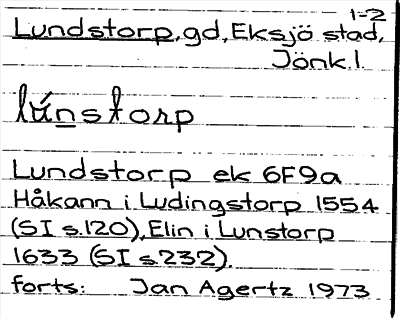 1-2
Lundstorp, gd, Eksjö stad,
Jönk.l.
lúnstorp
Lundstorp ek 6F9a
Håkann i Ludingstorp 1554
(SI s.120), Elin i Lunstorp
1633 (SI s.232).
forts: Jan Agertz 1973